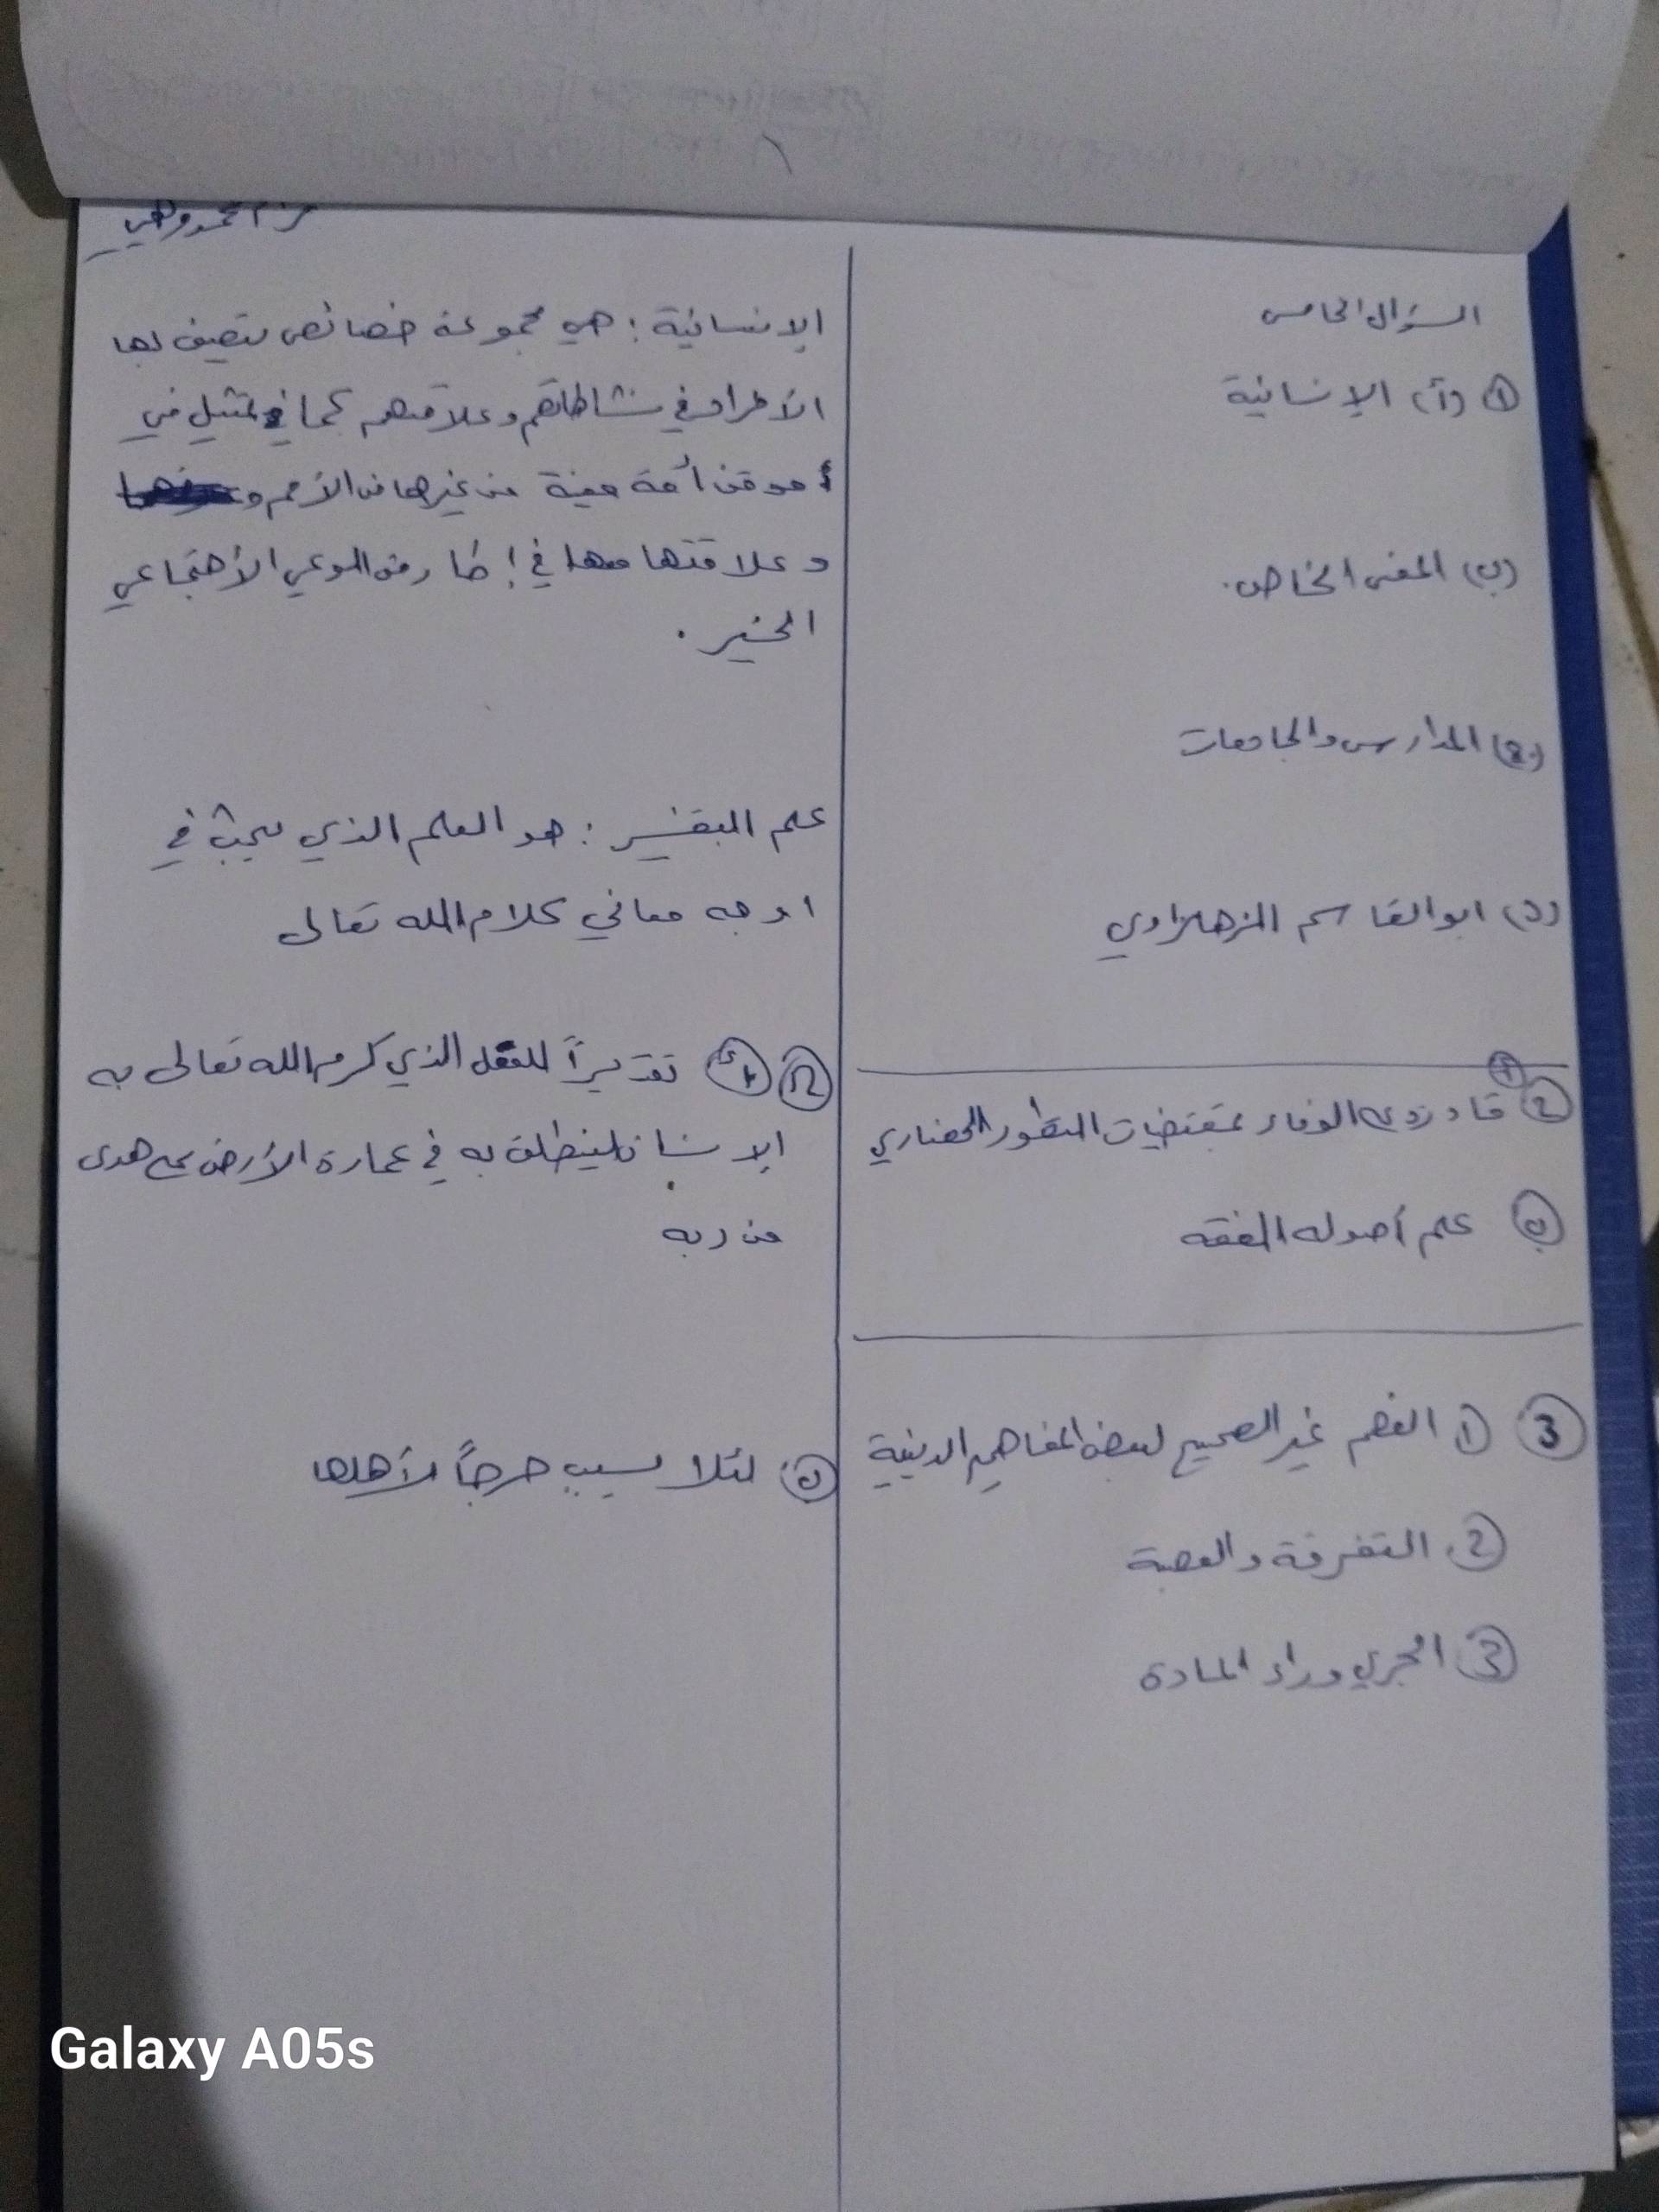 محمد وهبي
السؤال الخامس
① (أ) الإنسانية
(ب) المعنى الخاص.
(ج) المدارس والجامعات
(د) ابو القاسم الزهراوي
② أ قادر على الوفاء بمقتضيات التطور الحضاري
ب علم أصول الفقه
③ ① الفهم غير الصحيح لبعض المفاهيم الدينية
② التفرقة والعصبة
③ الجري وراء المادة
الإنسانية : هي مجموعة خصائص تتصف بها
الأطراف في نشاطاتهم وعلاقتهم كما تتمثل في
موقف أمة معينة من غيرها من الأمم و
وعلاقتها معها في إطار من الوعي الأجتماعي
الخير .
علم التفسير : هو العلم الذي يبحث في
اوجه معاني كلام الله تعالى
تقديراً للعقل الذي كرم الله تعالى به
الإنسان لينطلق به في عمارة الأرض على هدى
من ربه
ب لئلا يسبب حرجاً لأهلها
Galaxy A05s